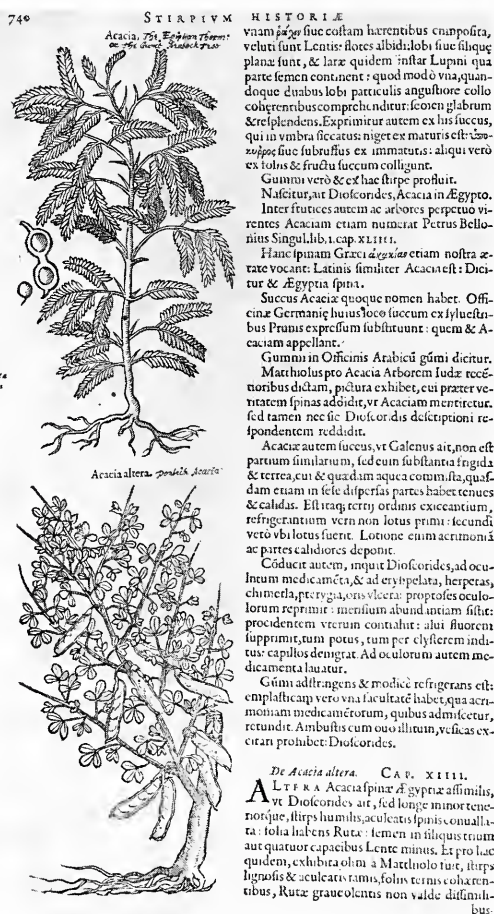 740 STIRPIVM HISTORIÆ
Acacia. The Egiptian Thorne
or the Great
vnam ῥάχιν siue costam hærentibus composita,
veluti sunt Lentis: flores albidi: lobi siue siliquę
planæ sunt, & latæ quidem instar Lupini qua
parte semen continent: quod modò vna, quan-
doque duabus lobi particulis angustiore collo
cohęrentibus comprehenditur: semen glabrum
& resplendens. Exprimitur autem ex his succus,
qui in vmbra siccatus: niger ex maturis est: ὑπο-
κυῤῥος siue subruffus ex immaturis: aliqui verò
ex foliis & fructu succum colligunt.
Gummi verò & ex hac stirpe profluit.
Nascitur, ait Dioscorides, Acacia in Ægypto.
Inter frutices autem ac arbores perpetuo vi-
rentes Acaciam etiam numerat Petrus Bello-
nius Singul. lib. 1. cap. XLIIII.
Hanc spinam Græci ἀκακίαν etiam nostra æ-
tate vocant: Latinis similiter Acacia est: Dici-
tur & Ægyptia spina.
Succus Acaciæ quoque nomen habet. Offi-
cinæ Germanię huius loco succum ex syluestri-
bus Prunis expressum substituunt: quem & A-
caciam appellant.
Gummi in Officinis Arabicũ gũmi dicitur.
Matthiolus pro Acacia Arborem Iudæ recẽ-
tioribus dictam, pictura exhibet, cui præter ve-
ritatem spinas addidit, vt Acaciam mentiretur.
sed tamen nec sic Dioscoridis descriptioni re-
spondentem reddidit.
Acaciæ autem succus, vt Galenus ait, non est
partium similarium, sed cum substantia frigida
& terrea, cui & quædam aquea commista, quas-
dam etiam in sese dispersas partes habet tenues
& calidas. Est itaq; tertij ordinis exiccantium,
refrigerantium verò non lotus primi: secundi
verò vbi lotus fuerit. Lotione enim acrimoniã
ac partes calidiores deponit.
Cõducit autem, inquit Dioscorides, ad ocu-
lorum medicamẽta, & ad erysipelata, herperas,
chimetla, pterygia, oris vlcera: proptoses oculo-
lorum reprimit: mensium abundantiam sistit:
procidentem vterum contrahit: alui fluorem
supprimit, tum potus, tum per clysterem indi-
tus: capillos denigrat. Ad oculorum autem me-
dicamenta lauatur.
Gũmi adstringens & modicè refrigerans est:
emplasticam vero vna facultatẽ habet, qua acri-
moniam medicamẽtorum, quibus admiscetur,
retundit. Ambustis cum ouo illitum, vesicas ex-
citari prohibet: Dioscorides.
Acacia altera. Acacia
De Acacia altera. CAP. XIIII.
ALTERA Acacia spinæ Ægyptiæ assimilis,
vt Dioscorides ait, sed longe minor tene-
riorque, stirps humilis, aculeatis spinis conualla-
ta: folia habens Rutæ: semen in siliquis trium
aut quatuor capacibus Lente minus. Et pro hac
quidem, exhibita olim à Matthiolo fuit, stirps
lignosis & aculeatis ramis, foliis ternis cohæren-
tibus, Rutæ graueolentis non valde dissimili-
bus.